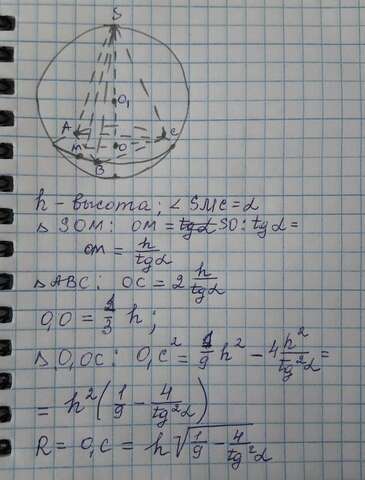 S
O₁
A
C
M
O
B
h - высота; ∠ SMC = α
△ SOM: OM = SO : tg α =
OM = h / tg α
△ ABC: OC = 2 h / tg α
O₁O = 1/3 h;
△ O₁OC: O₁C² = 1/9 h² - 4 h² / tg² α =
= h² ( 1/9 - 4 / tg² α )
R = O₁C = h √( 1/9 - 4 / tg² α )